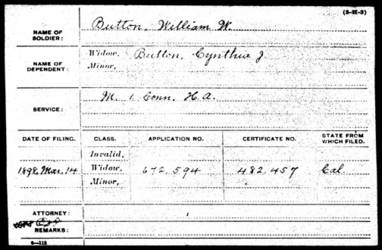 (3-25-3)
NAME OF SOLDIER: Button, William W.
NAME OF DEPENDENT: Widow, Button, Cynthia J.
Minor,
SERVICE: M. 1 Conn. H.A.
DATE OF FILING. CLASS. APPLICATION NO. CERTIFICATE NO. STATE FROM WHICH FILED.
Invalid,
1898, Mar. 14 Widow, 672.594 482.457 Cal.
Minor,
ATTORNEY:
REMARKS: